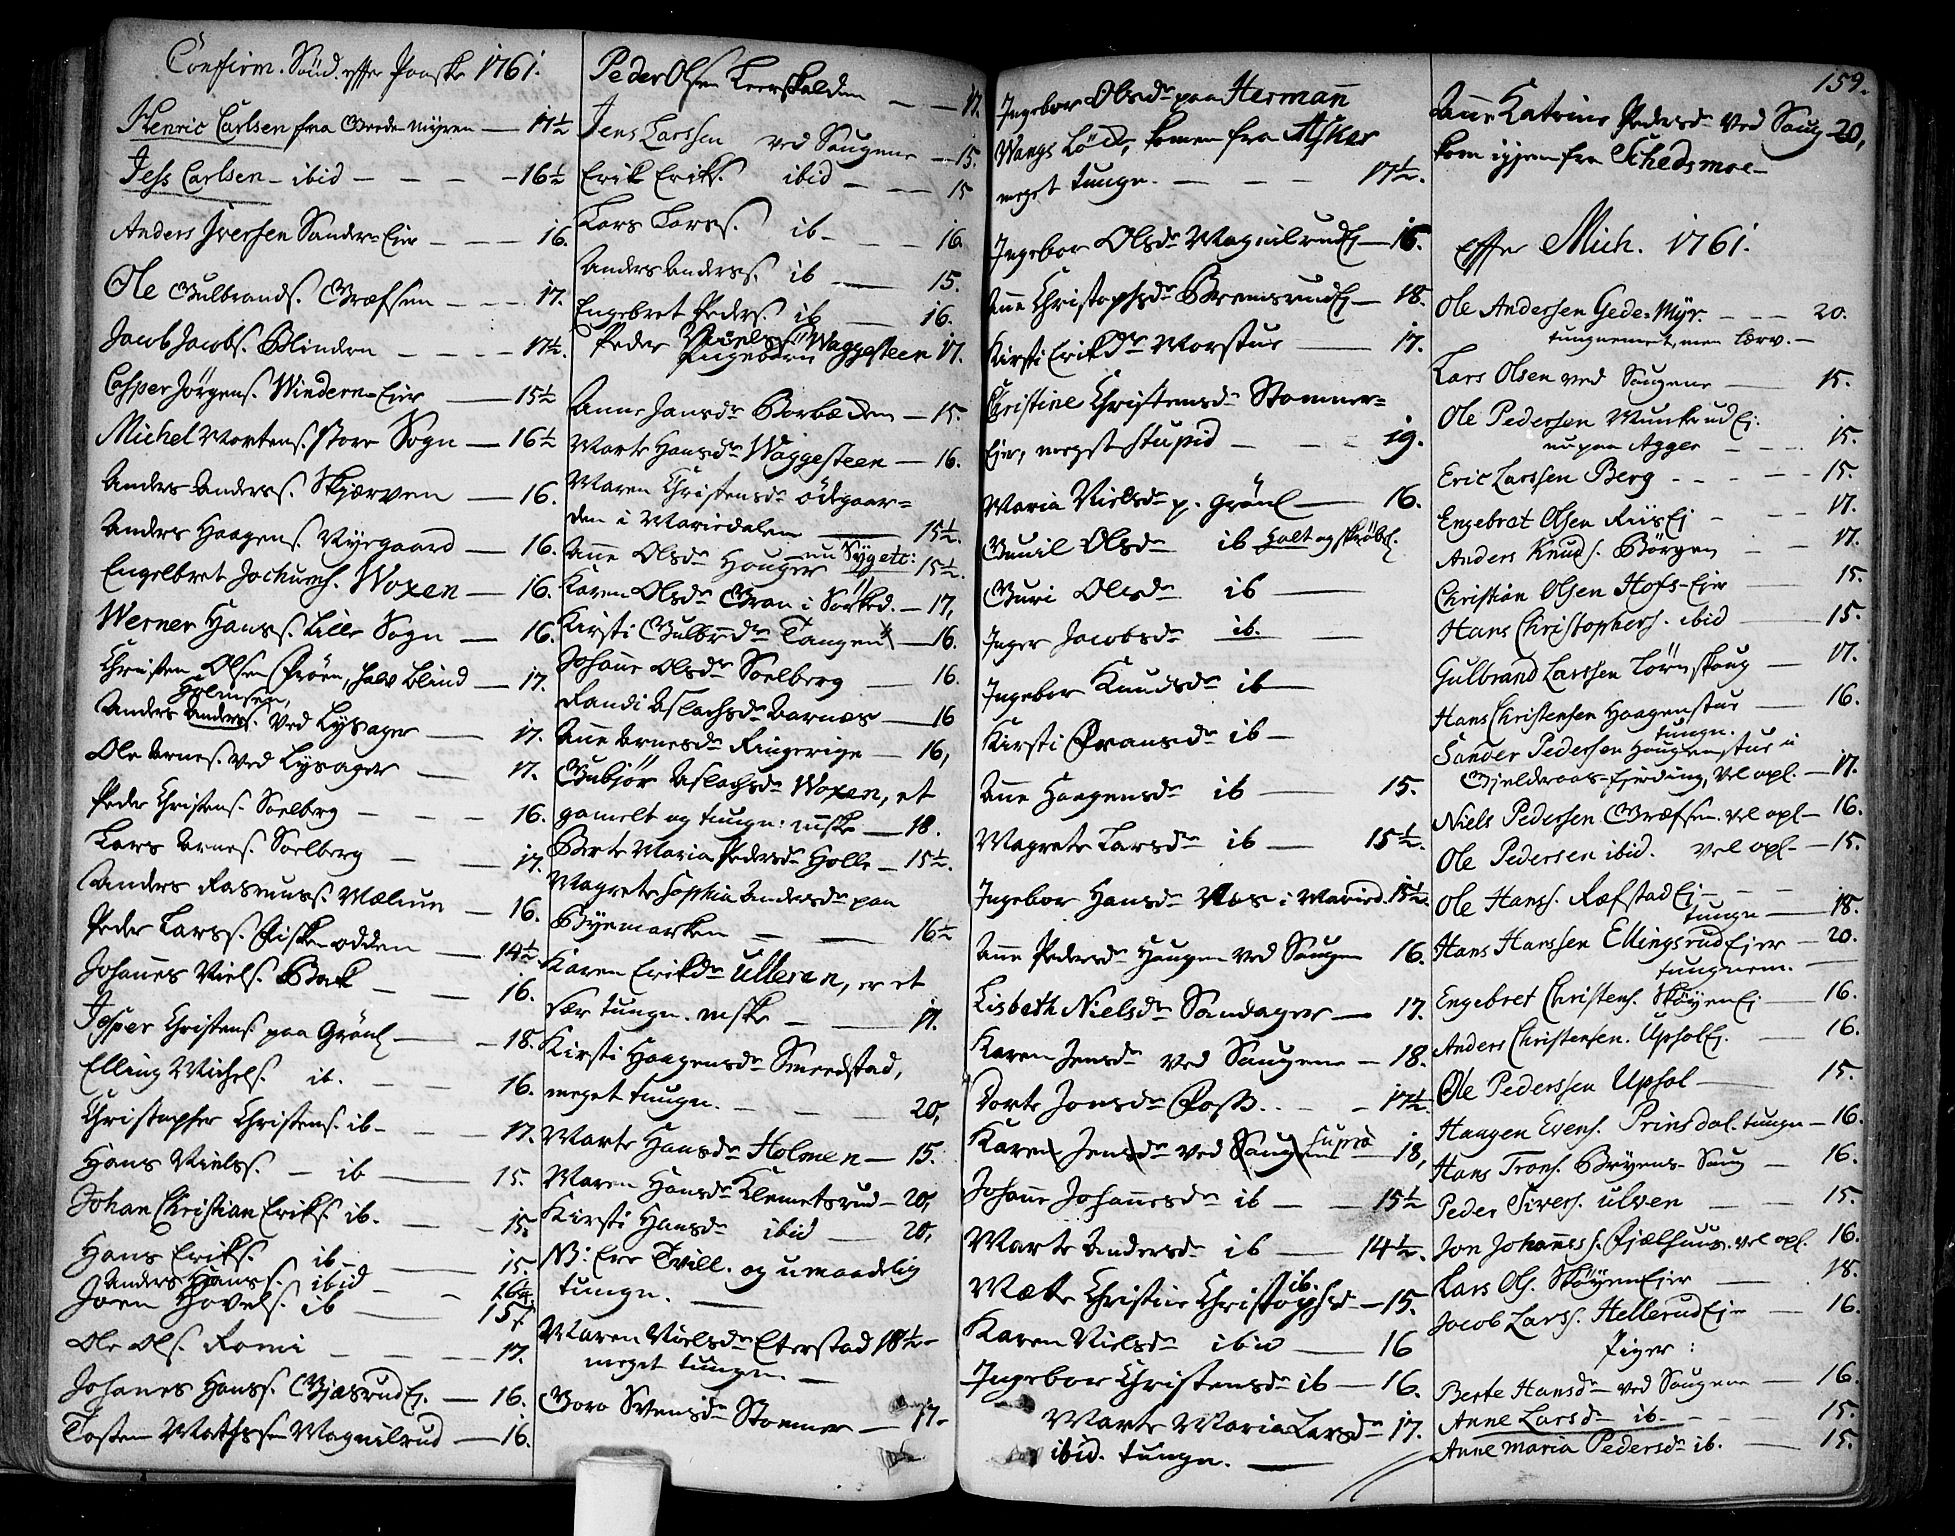 Confirm. Sönd. effter Paaske 1761.
Henric Carlsen fra Geede-myren — 17½
Jess Carlsen — ibid — 16½
Anders Iversen Sander-Eier — 16.
Ole Gulbrands. Græfsen — 17.
Jacob Jacobs. Blindern — 17½.
Casper Jörgens. Windern-Eier — 15½
Michel Mortens. store Sogn — 16½
Anders Anders. Skjærven — 16.
Anders Haagens. Nÿegaard — 16.
Engelbret Jochums. Woxen — 16.
Werner Hanss. Lille Sogn — 16.
Christen Olsen Fröen, halv blind — 17.
Anders Anders. ved Lysager — 17.
Ole Arnes. ved Lysager — 17.
Peder Christens. Soelberg — 16.
Lars Arnes. Soelberg — 17.
Anders Rasmuss. Mælum — 16.
Peder Larss. Fiskeodden — 14½.
Johannes Niels. Bak — 16.
Jesper Christens. paa Grönl. — 18.
Elling Michels. ib. — 16.
Christopher Christens. ib — 17.
Hans Nielss. — ib — 15.
Johan Christian Eriks. ib. — 15.
Hans Eriks. ib — 15.
Anders Hanss. ibid — 16½.
Joen Hovels. ib — 15½
Ole Ols. Romi — 17.
Johanes Hanss. Gjæsrud Ej. — 16.
Tosten Mathissen Magnilrud — 16.
Peder Olsen Leerskalden — 17.
Jens Larssen ved Saugene — 15.
Erik Eriks. ibid — 15
Lars Larss. ib — 16.
Anders Anderss. ib — 15.
Engebret Peders. ib — 16.
Peder Nielss. Waggesteen 17.
Anne Jansdr Borbæcken — 15.
Marte Hansdr Waggesteen — 16.
Maren Christensdr ödegaar=
den i Mariedalen — 15½.
Ane Olsdr Houger nu Sÿgetc: 15½.
Karen Olsdr Gran i Sörked. — 17,
Kirsti Gulbrdr Tangen — 16.
Johane Olsdr Soelberg — 16.
Randi Aslachsdr Aarnæs — 16
Ane Arnesdr Ringerige — 16,
Gubjör Aslachsdr Woxen, et
gamelt og tungn: mske — 18.
Berte Maria Pedersdr Holle — 15½.
Magrete Sophia Andersdr paa
Byemarken — 16½
Karen Erikdr Ulleren, er et
sær tungn. mske — 17.
Kirsti Haagensdr Smedstad,
meget tungn. — 20,
Marte Hansdr Holmen — 15.
Maren Hansdr Klemetsrud — 20,
Kirsti Hansdr ibid — 20,
NB: Ere Tvill. og umaadelig
tungn. —
Maren Nielsdr Eterstad 18½ —
meget tungn —
Goro Svensdr Stommer — 17 —
159.
Ingebor Olsdr paa Hermañ
Wangs Löcke, komen fra Asker
meget tungn. — 17½.
Ingebor Olsdr Magnilrud Ej — 16.
Ane Christophsdr Bremsrud Ej — 18.
Kirsti Erikdr Morstue — 17.
Christine Christensdr Stommer=
Ejer, meget stupid — 19.
Maria Nielsdr p. Grönl — 16.
Gunil Olsdr ib halt og skröbl.
Guri Olsdr ib —
Inger Jacobsdr ib. —
Ingebor Knudsdr ib —
Kirsti Fransdr ib —
Ane Haagensdr ib — 15.
Magrete Larsdr ib — 15½.
Ingebor Hansdr Aas i Maried. 15½.
Ane Pedersdr Haugen ved Saugen 16.
Lisbeth Nielsdr Sandager — 17.
Karen Jensdr ved Saugene — 18.
Dorte Jonsdr Foss. — 17½.
Karen Jensdr ved Saugene supra — 18,
Johane Johanesdr ib — 15½
Marte Andersdr ib — 14½.
Mette Christine Christophsdr ib. — 15.
Karen Nielsdr ibid — 16
Ingebor Christensdr ib — 16.
Marte Maria Larsdr 17.
ibid. tungn. —
Ane Katrine Pedersdr ved Saug — 20,
kom igjen fra Schedsmoe —
effter Mich. 1761.
Ole Andersen Gede-Myr. — 20.
tungnemet, men lærv. —
Lars Olsen ved Saugene — 15.
Ole Pedersen Munkerud Ej.
nu paa Agger — 15.
Eric Larssen Berg — 15.
Engebret Olsen Riis Ej — 17.
Anders Knuds. Börgen — 17.
Christian Olsen Hofs-Ejer — 15.
Hans Christophers. ibid — 15.
Gulbrand Larssen Lörenskoug — 17.
Hans Christensen Haagenstue — 16.
tungn.
Sander Pedersen Haugenstue i
Gjelderaas-fjerding, vel opl. — 17.
Niels Pedersen Græfsen. vel opl — 16.
Ole Pedersen ibid. vel opl — 15.
Ole Hanss. Refstad Ej
tungn — 18.
Hans Hanssen Ellingsrud Ejer — 20.
tungnem. —
Engebret Christens. Skøyen Ej — 16.
Anders Christensen. Upsol Ej. — 16.
Ole Pederssen Upsol — 15.
Haagen Evens. Prinsdal. tungn — 16.
Hans Trons. Bryens-Saug — 16.
Peder Sivers. ulven — 15.
Jon Johaness. Fjælhuus. vel opl. 16.
Lars Ols. Skøyen Ejer — 18.
Jacob Larss. Hellerud Eje — 16.
Piger:
Berte Hansdr ved Saugene — 16.
Anne Larsdr ib. — 15.
Anne Maria Pedersdr ib. — 15.